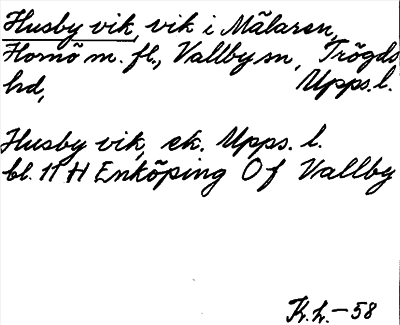 Husby vik, vik i Mälaren,
Homö m. fl., Vallby sn, Trögds
hd, Upps. l.
Husby vik, ek. Upps. l.
bl. 11 H Enköping O f Vallby
K.L. - 58